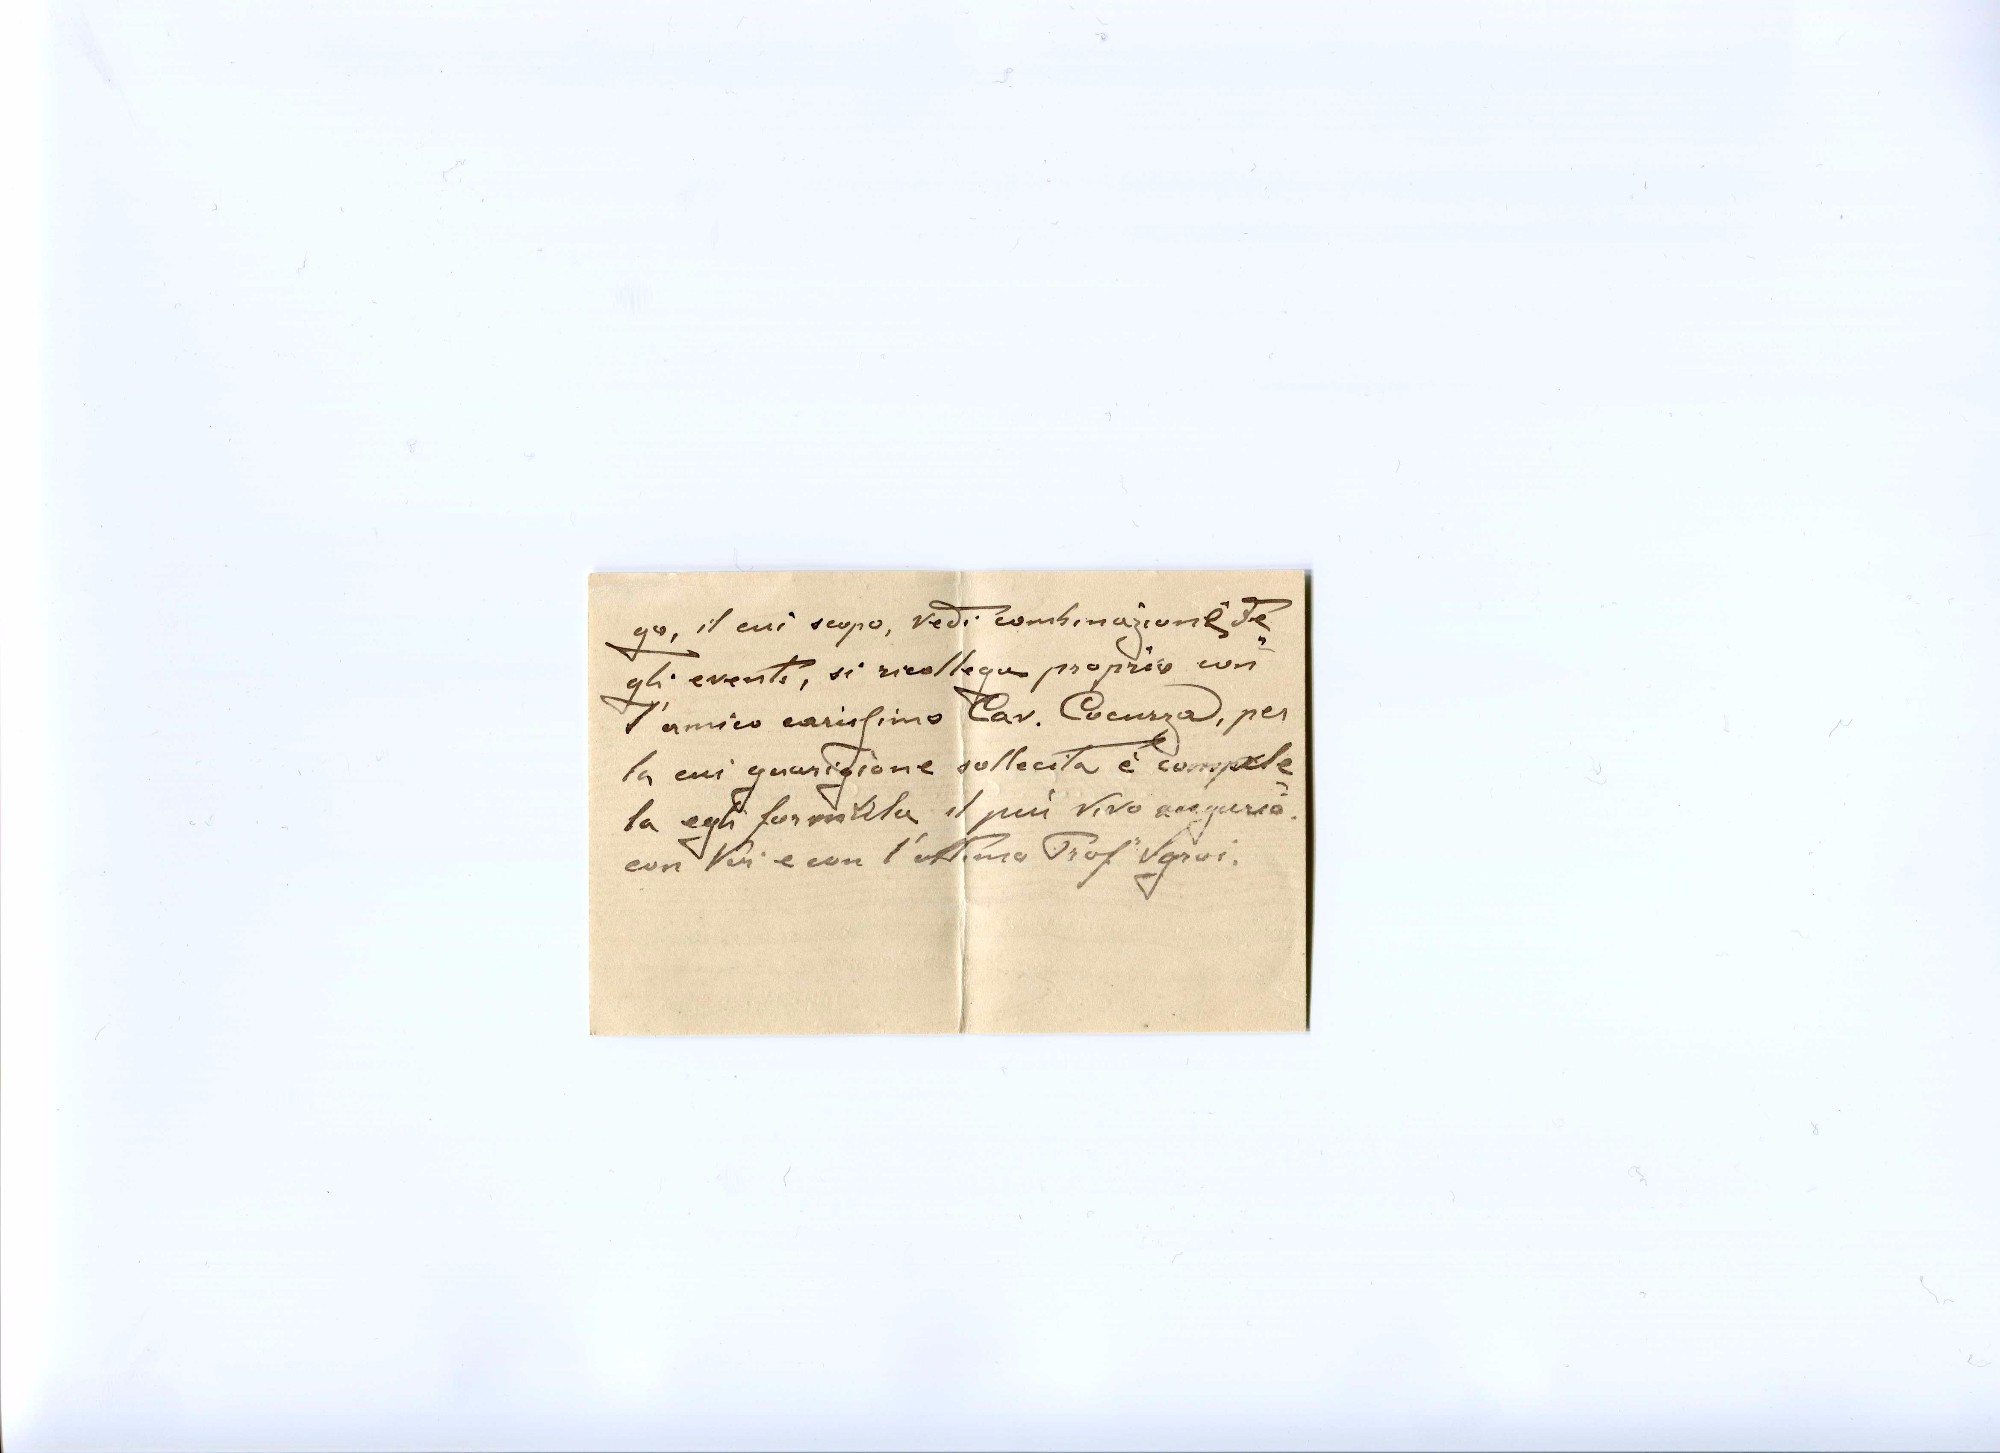 go, il cui scopo, vedi combinazione de
gli eventi, si ricollega proprio con
l'amico carissimo Cav. Cocuzza, per
la cui guarigione sollecita e comple
ta egli formula il più vivo augurio.
con Voi e con l'ottimo Prof Sgroi.